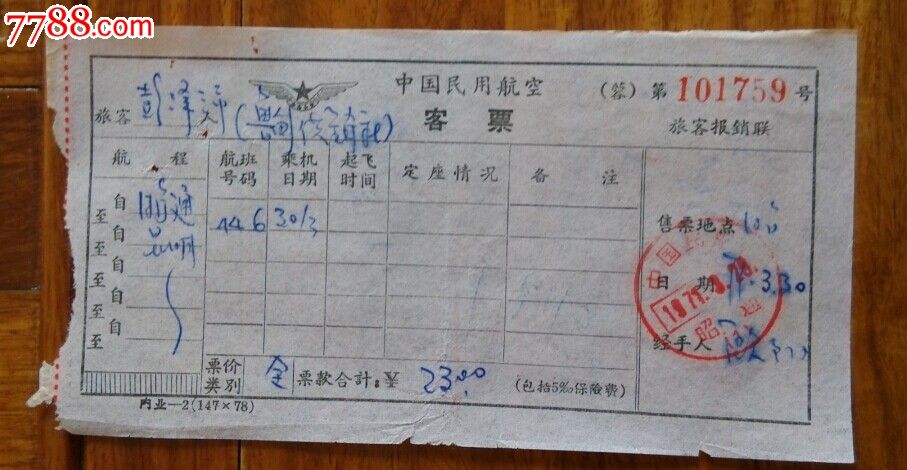 7788.com
中国民用航空
客票
(蓉) 第 101759 号
旅客报銷联
旅客 彭泽 人
航程 航班号码 乘机日期 起飞时间 定座情况 备注
自 昭通 446 30/3
至 昆明
自
至
自
至
自
至
自
至
售票地点
日期 3.30
经手人
中国
1971.
昭通
票价类别 全 票款合計:¥ 23.00 (包括5‰保險费)
内业—2(147×78)